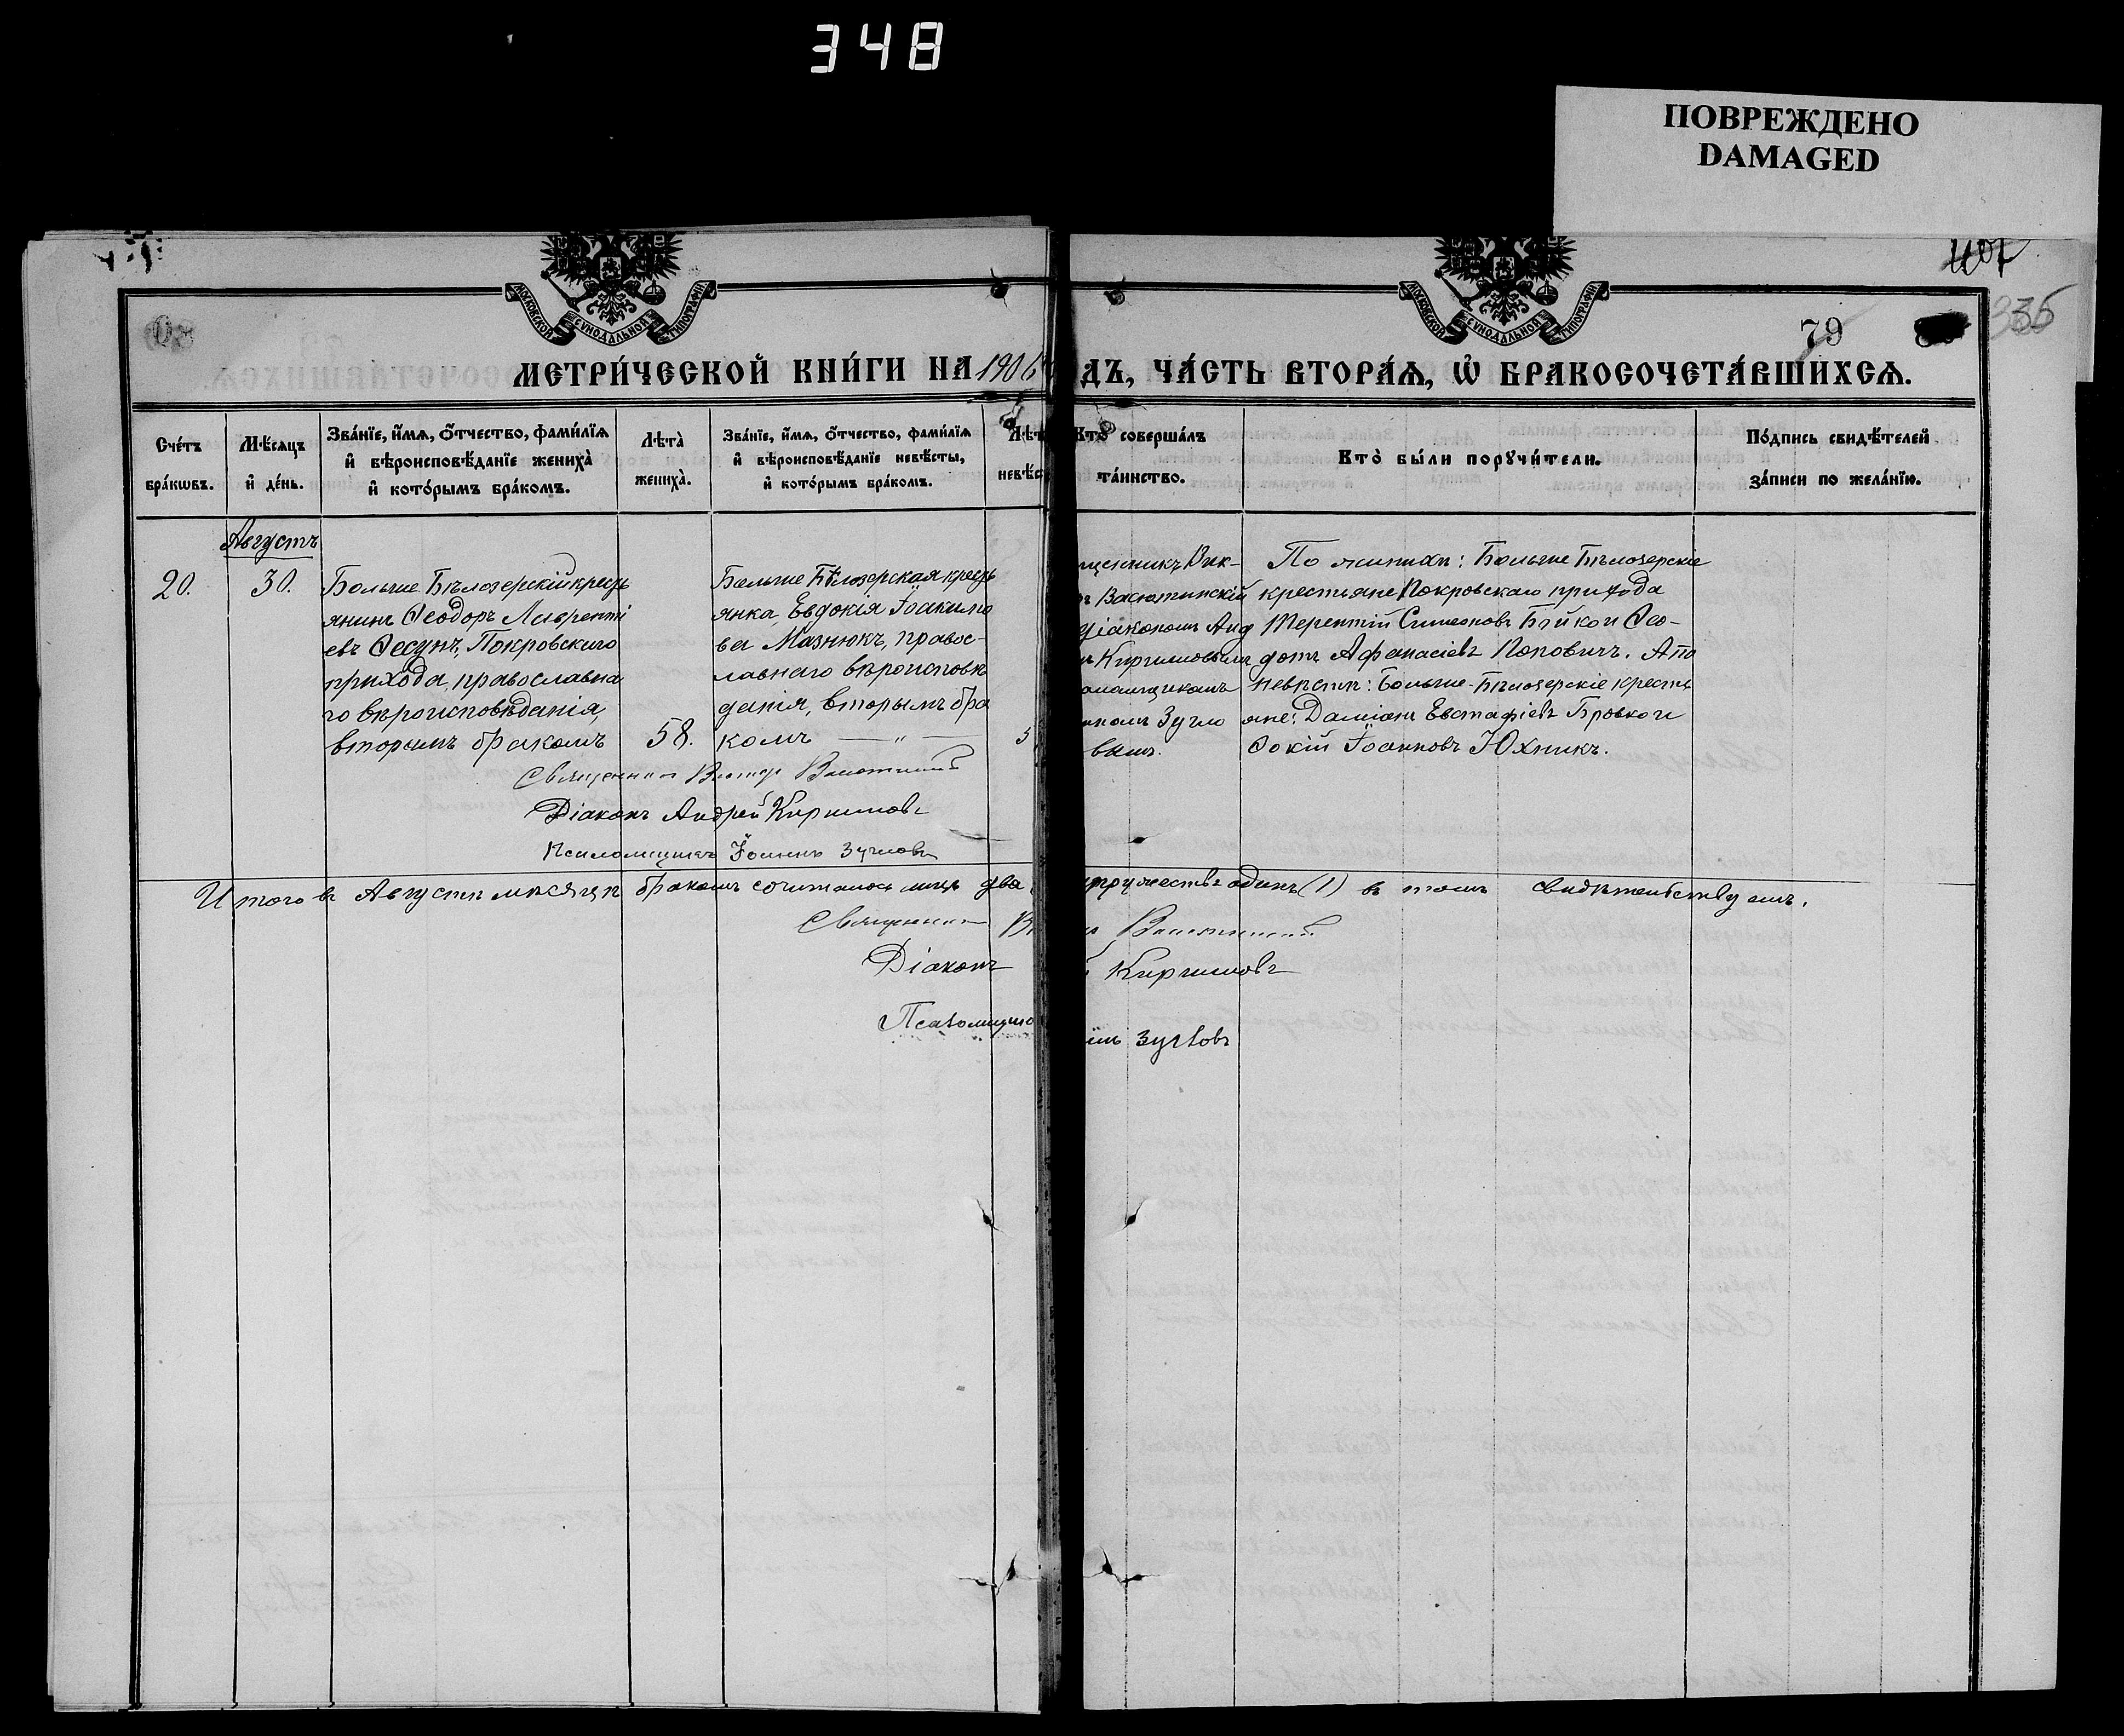 348
ПОВРЕЖДЕНО
DAMAGED
МОСКОВСКОЙ СѴНОДАЛЬНОЙ ТИПОГРАФІИ
МОСКОВСКОЙ СѴНОДАЛЬНОЙ ТИПОГРАФІИ
79
335
МЕТРИ́ЧЕСКОЙ КНИ́ГИ НА 1906
ДЪ, ЧА́СТЬ ВТОРА́Ѧ, Ѡ҆ БРАКОСОЧЕТА́ВШИХСѦ.
Сче́тъ
бра́кѡвъ.
Мѣ́сѧцъ
и҆ де́нь.
Зва́нїе, и҆́мѧ, ѻ҆́тчество, фами́лїѧ
и҆ вѣроисповѣ́данїе жениха̀
и҆ кото́рымъ бра́комъ.
Лѣта̀
жениха̀.
Зва́нїе, и҆́мѧ, ѻ҆́тчество, фами́лїѧ
и҆ вѣроисповѣ́данїе невѣ́сты,
и҆ кото́рымъ бра́комъ.
Лѣт
невѣ́с
Кто̀ соверша́лъ
та́инство.
Кто̀ бы́ли порꙋчи́тели.
По́дпись свидѣ́телей
за́писи по жела́нїю.
Августъ
20.
30.
Больше Бѣлозерскій кресть
янинъ Ѳеодоръ Лаврентi
евъ Ѳесунъ, Покровскаго
прихода, православна
го вѣроисповѣданія,
вторымъ бракомъ
58.
Больше Бѣлозерская кресть
янка Евдокія Іоакимо
ва Мазнюкъ, правос-
лавнаго вѣроисповѣ
данія, вторымъ бра
комъ — „ —
5
щенникъ Вик-
ръ Васютинскій
діакономъ Анд
ъ Киримовымъ
аломщикомъ
нномъ Зугло
вымъ.
По женихѣ: Больше Бѣлозерскіе
крестьяне Покровскаго прихода
Терентій Симеоновъ Бойко и Ѳео-
дотъ Афанасіевъ Поповичъ. А по
невѣстѣ: Больше-Бѣлозерскіе кресть
яне: Даміанъ Евстафіевъ Бровко и
Ѳокій Іоанновъ Юхникъ.
Священникъ Викторъ Васютинскій
Діаконъ Андрей Киримовъ
Псаломщикъ Іоаннъ Зугловъ
Итого въ Августѣ мѣсяцѣ бракомъ сочиталось лицъ два
пружествъ одинъ (1) въ томъ свидѣтельствуемъ.
Священникъ Ви
ъ Васютинскій
Діаконъ
й Киримовъ
Псаломщ
ннъ Зугловъ